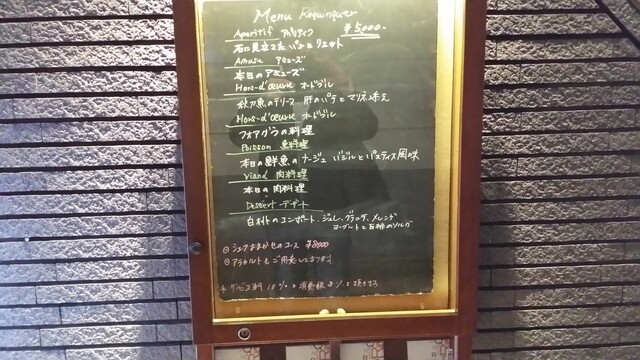 Menu Requinquer
Aperitif アペリティフ ¥5,000-
石に見立てたパンとリエット
Amuse アミューズ
本日のアミューズ
Hors-d'œuvre オードブル
秋刀魚のテリーヌ 肝のパテとマリネ添え
Hors-d'œuvre オードブル
フォアグラの料理
Poisson 魚料理
本日の鮮魚のナージュ バジルとパスティス風味
Viand 肉料理
本日の肉料理
Dessert デザート
白桃のコンポート、ジュレ、グラニテ、メレンゲ
ヨーグルトと白桃のソルベ
シェフおまかせのコース ¥8,000
アラカルトもご用意しております
サービス料 10% 消費税 % 頂きます